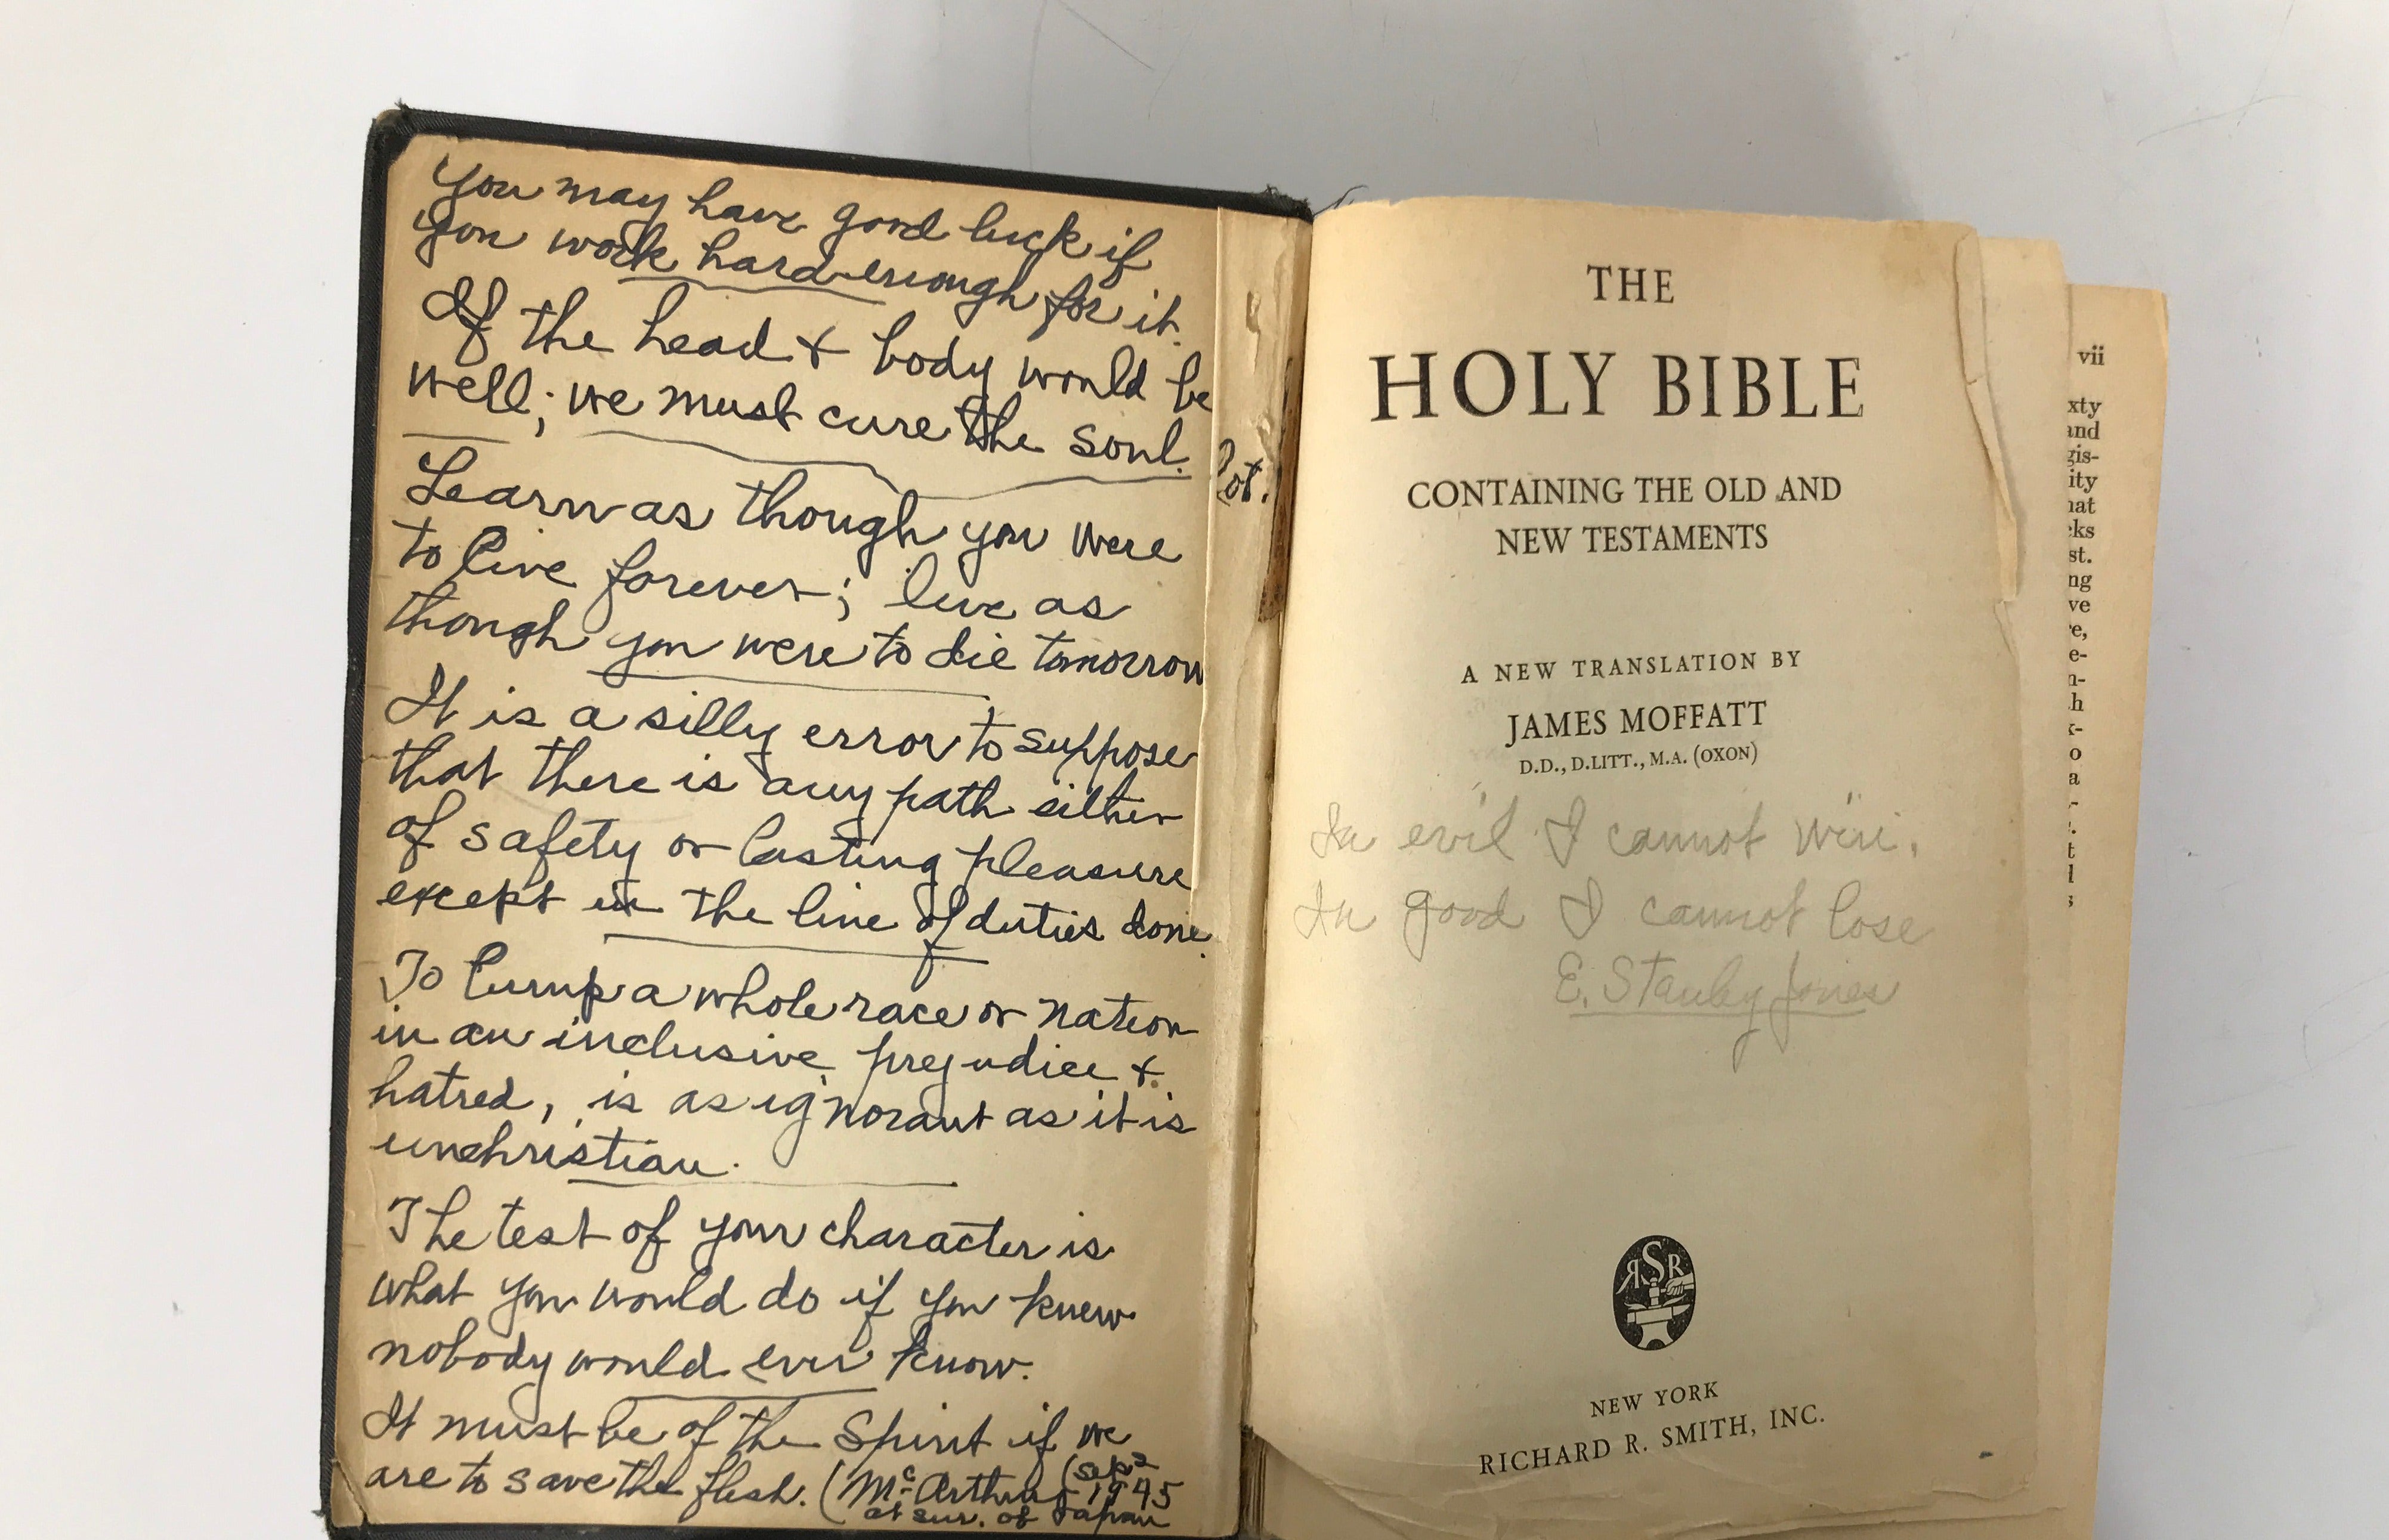 You may have good luck if
you work hard enough for it.
If the head & body would be
well; we must cure the soul.
Learn as though you were
to live forever; live as
though you were to die tomorrow
It is a silly error to suppose
that there is any path either
of safety or lasting pleasure
except in the line of duties done.
To lump a whole race or nation
in an inclusive prejudice &
hatred, is as ignorant as it is
unchristian.
The test of your character is
what you would do if you knew
nobody would ever know.
It must be of the Spirit if we
are to save the flesh. (McArthur (Sep 2
1945
at sur. of Japan
THE
HOLY BIBLE
CONTAINING THE OLD AND
NEW TESTAMENTS
A NEW TRANSLATION BY
JAMES MOFFATT
D.D., D.LITT., M.A. (OXON)
In evil I cannot win.
In good I cannot lose
E. Stanley Jones
RSR
NEW YORK
RICHARD R. SMITH, INC.
vii
xty
and
gis-
ity
hat
cks
st.
ng
ve
e,
e-
n-
h